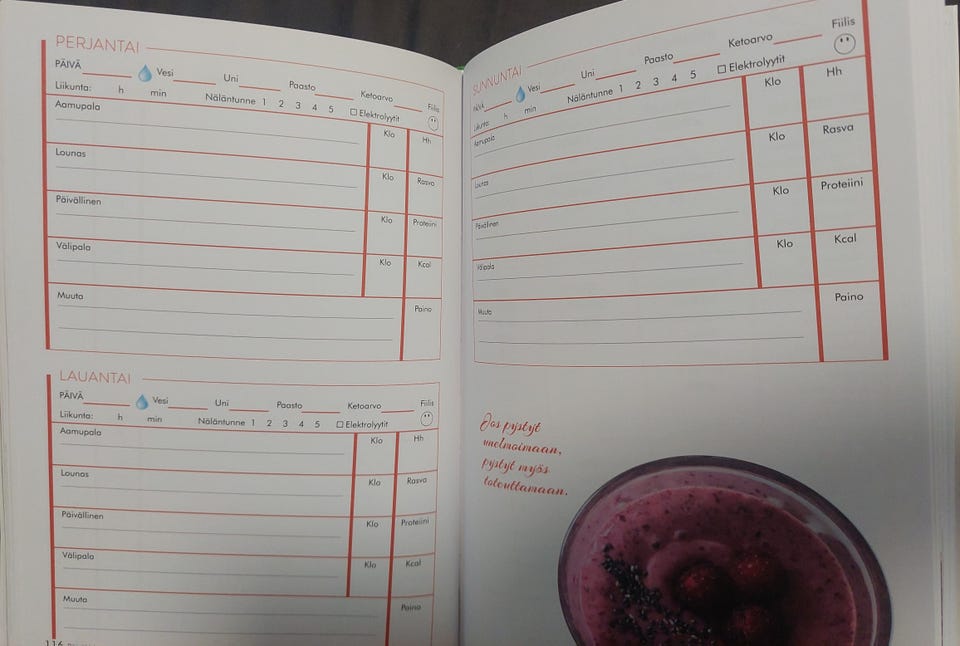 PERJANTAI
PÄIVÄ Vesi Uni Paasto Ketoarvo Fiilis
Liikunta: h min Näläntunne 1 2 3 4 5 Elektrolyytit
Aamupala Klo Hh
Lounas Klo Rasva
Päivällinen Klo Proteiini
Välipala Klo Kcal
Muuta Paino
LAUANTAI
PÄIVÄ Vesi Uni Paasto Ketoarvo Fiilis
Liikunta: h min Näläntunne 1 2 3 4 5 Elektrolyytit
Aamupala Klo Hh
Lounas Klo Rasva
Päivällinen Klo Proteiini
Välipala Klo Kcal
Muuta Paino
116
SUNNUNTAI
PÄIVÄ Vesi Uni Paasto Ketoarvo Fiilis
Liikunta: h min Näläntunne 1 2 3 4 5 Elektrolyytit
Aamupala Klo Hh
Lounas Klo Rasva
Päivällinen Klo Proteiini
Välipala Klo Kcal
Muuta Paino
Jos pystyt
unelmoimaan,
pystyt myös
toteuttamaan.